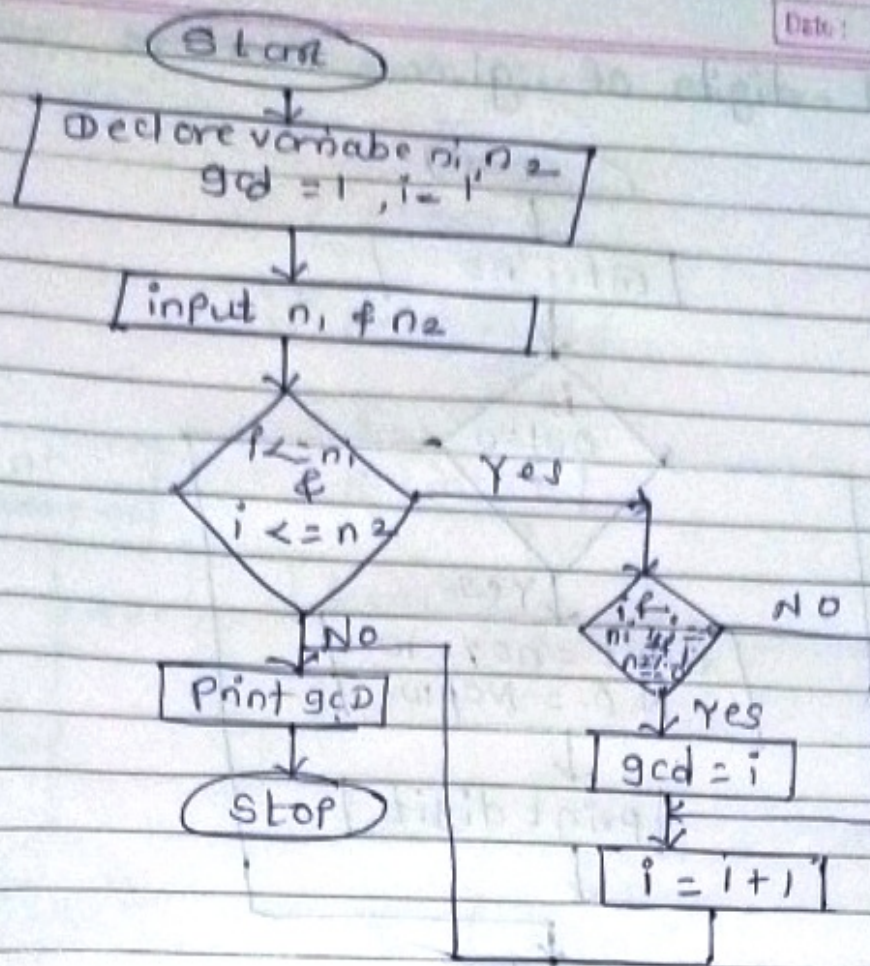 Date:
Start
Declare variabe n1, n2
gcd = 1, i = 1
input n1 & n2
i <= n1
&
i <= n2
Yes
if
NO
No
Print gcD
Yes
gcd = i
Stop
i = i + 1